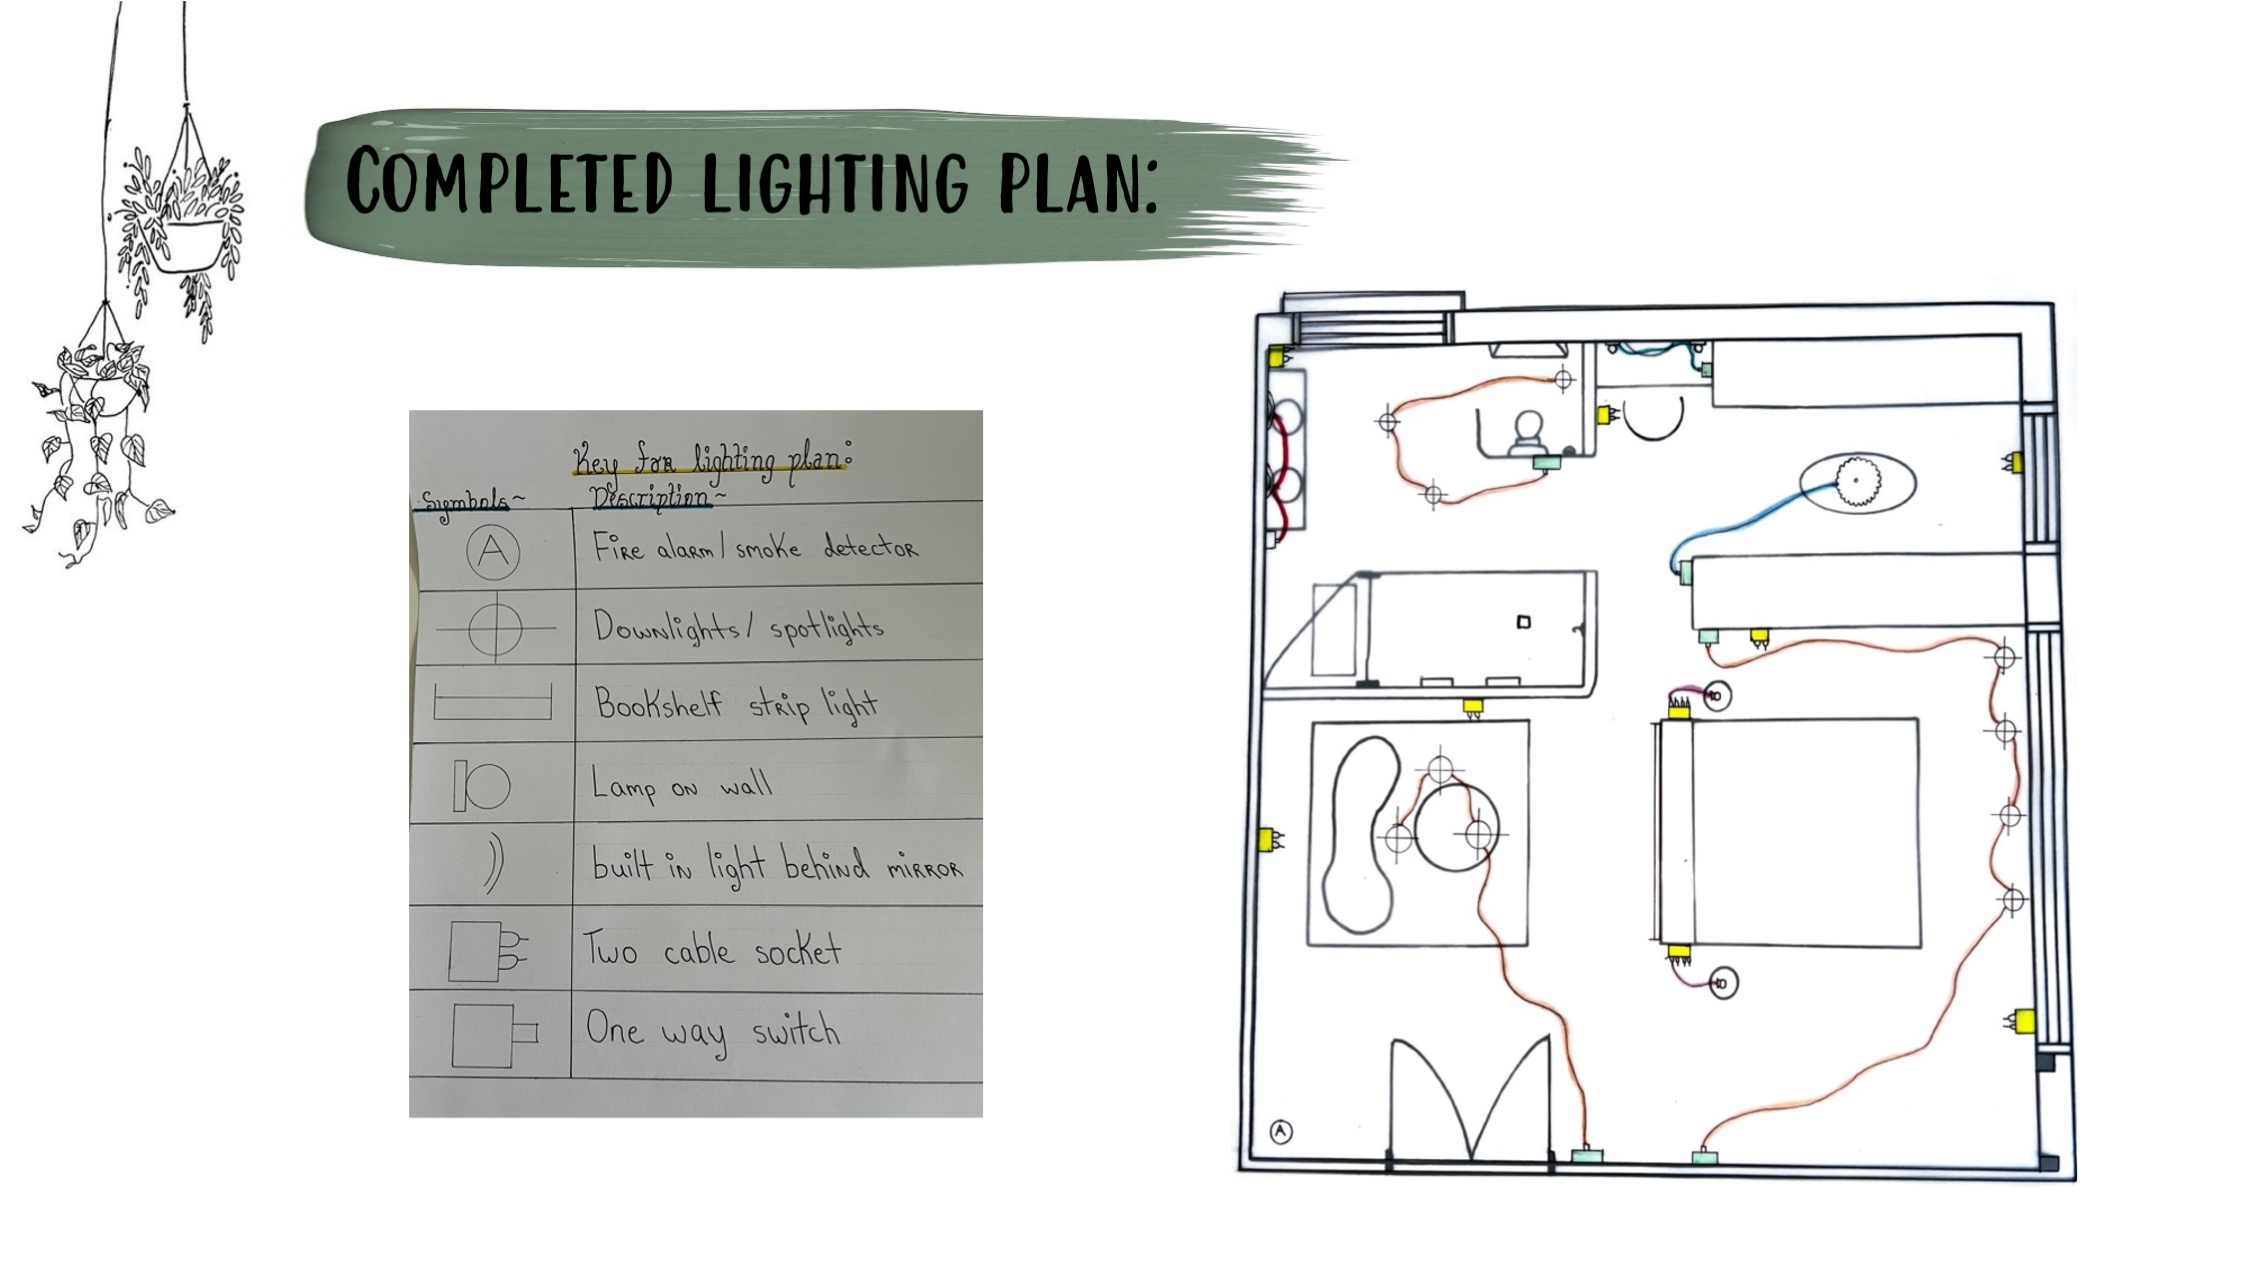 COMPLETED LIGHTING PLAN:
Key for lighting plan:
Symbols~ Description~
A Fire alarm / smoke detector
Downlights / spotlights
Bookshelf strip light
Lamp on wall
built in light behind mirror
Two cable socket
One way switch
A